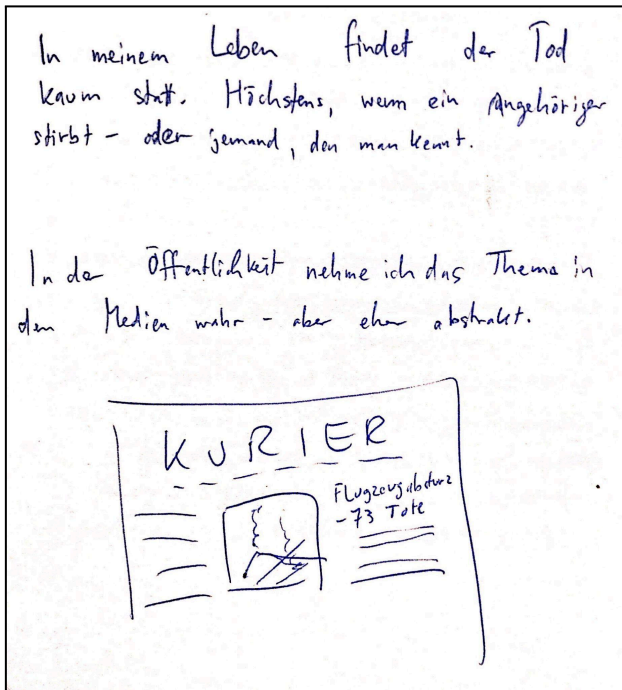 In meinem Leben findet der Tod
kaum statt. Höchstens, wenn ein Angehöriger
stirbt – oder jemand, den man kennt.
In der Öffentlichkeit nehme ich das Thema in
den Medien wahr – aber eher abstrakt.
KURIER
Flugzeugabsturz
- 73 Tote